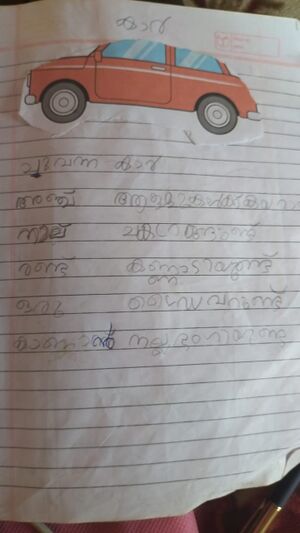 കാർ
ചുവന്ന കാർ
അഞ്ച്
നാല് ചക്രമുണ്ട്
രണ്ട് കണ്ണാടിയുണ്ട്
ഒരു ഡ്രൈവറുണ്ട്
കാണാൻ നല്ല ഭംഗിയുണ്ട്